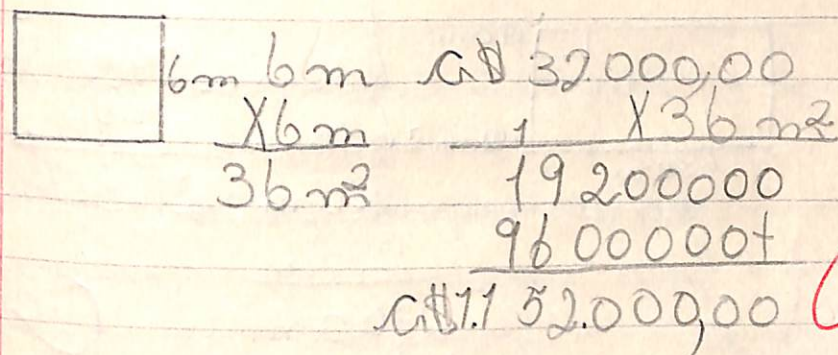 6m 6m Cr$ 32.000,00
X6m 1 X36 m²
36 m² 19200000
9600000+
Cr$1.152.000,00